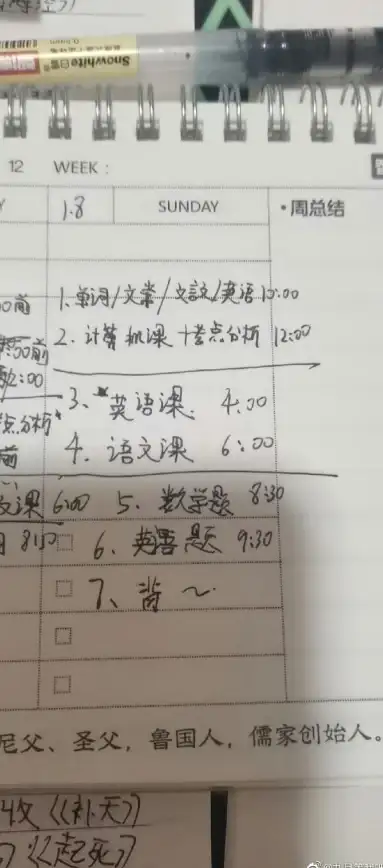 Snowhite白雪
12 WEEK:
1.8 SUNDAY •周总结
00前
1、单词/文常/文言文/英语 10:00
:00前
2、计算机课 +考点分析 12:00
2:00
3、英语课 4:00
点分析
4、语文课 6:00
前
文课 6:00 5、数学题 8:30
8:50 6、英语题 9:30
7、背~
尼父、圣父，鲁国人，儒家创始人。
收《补天》
《起死》